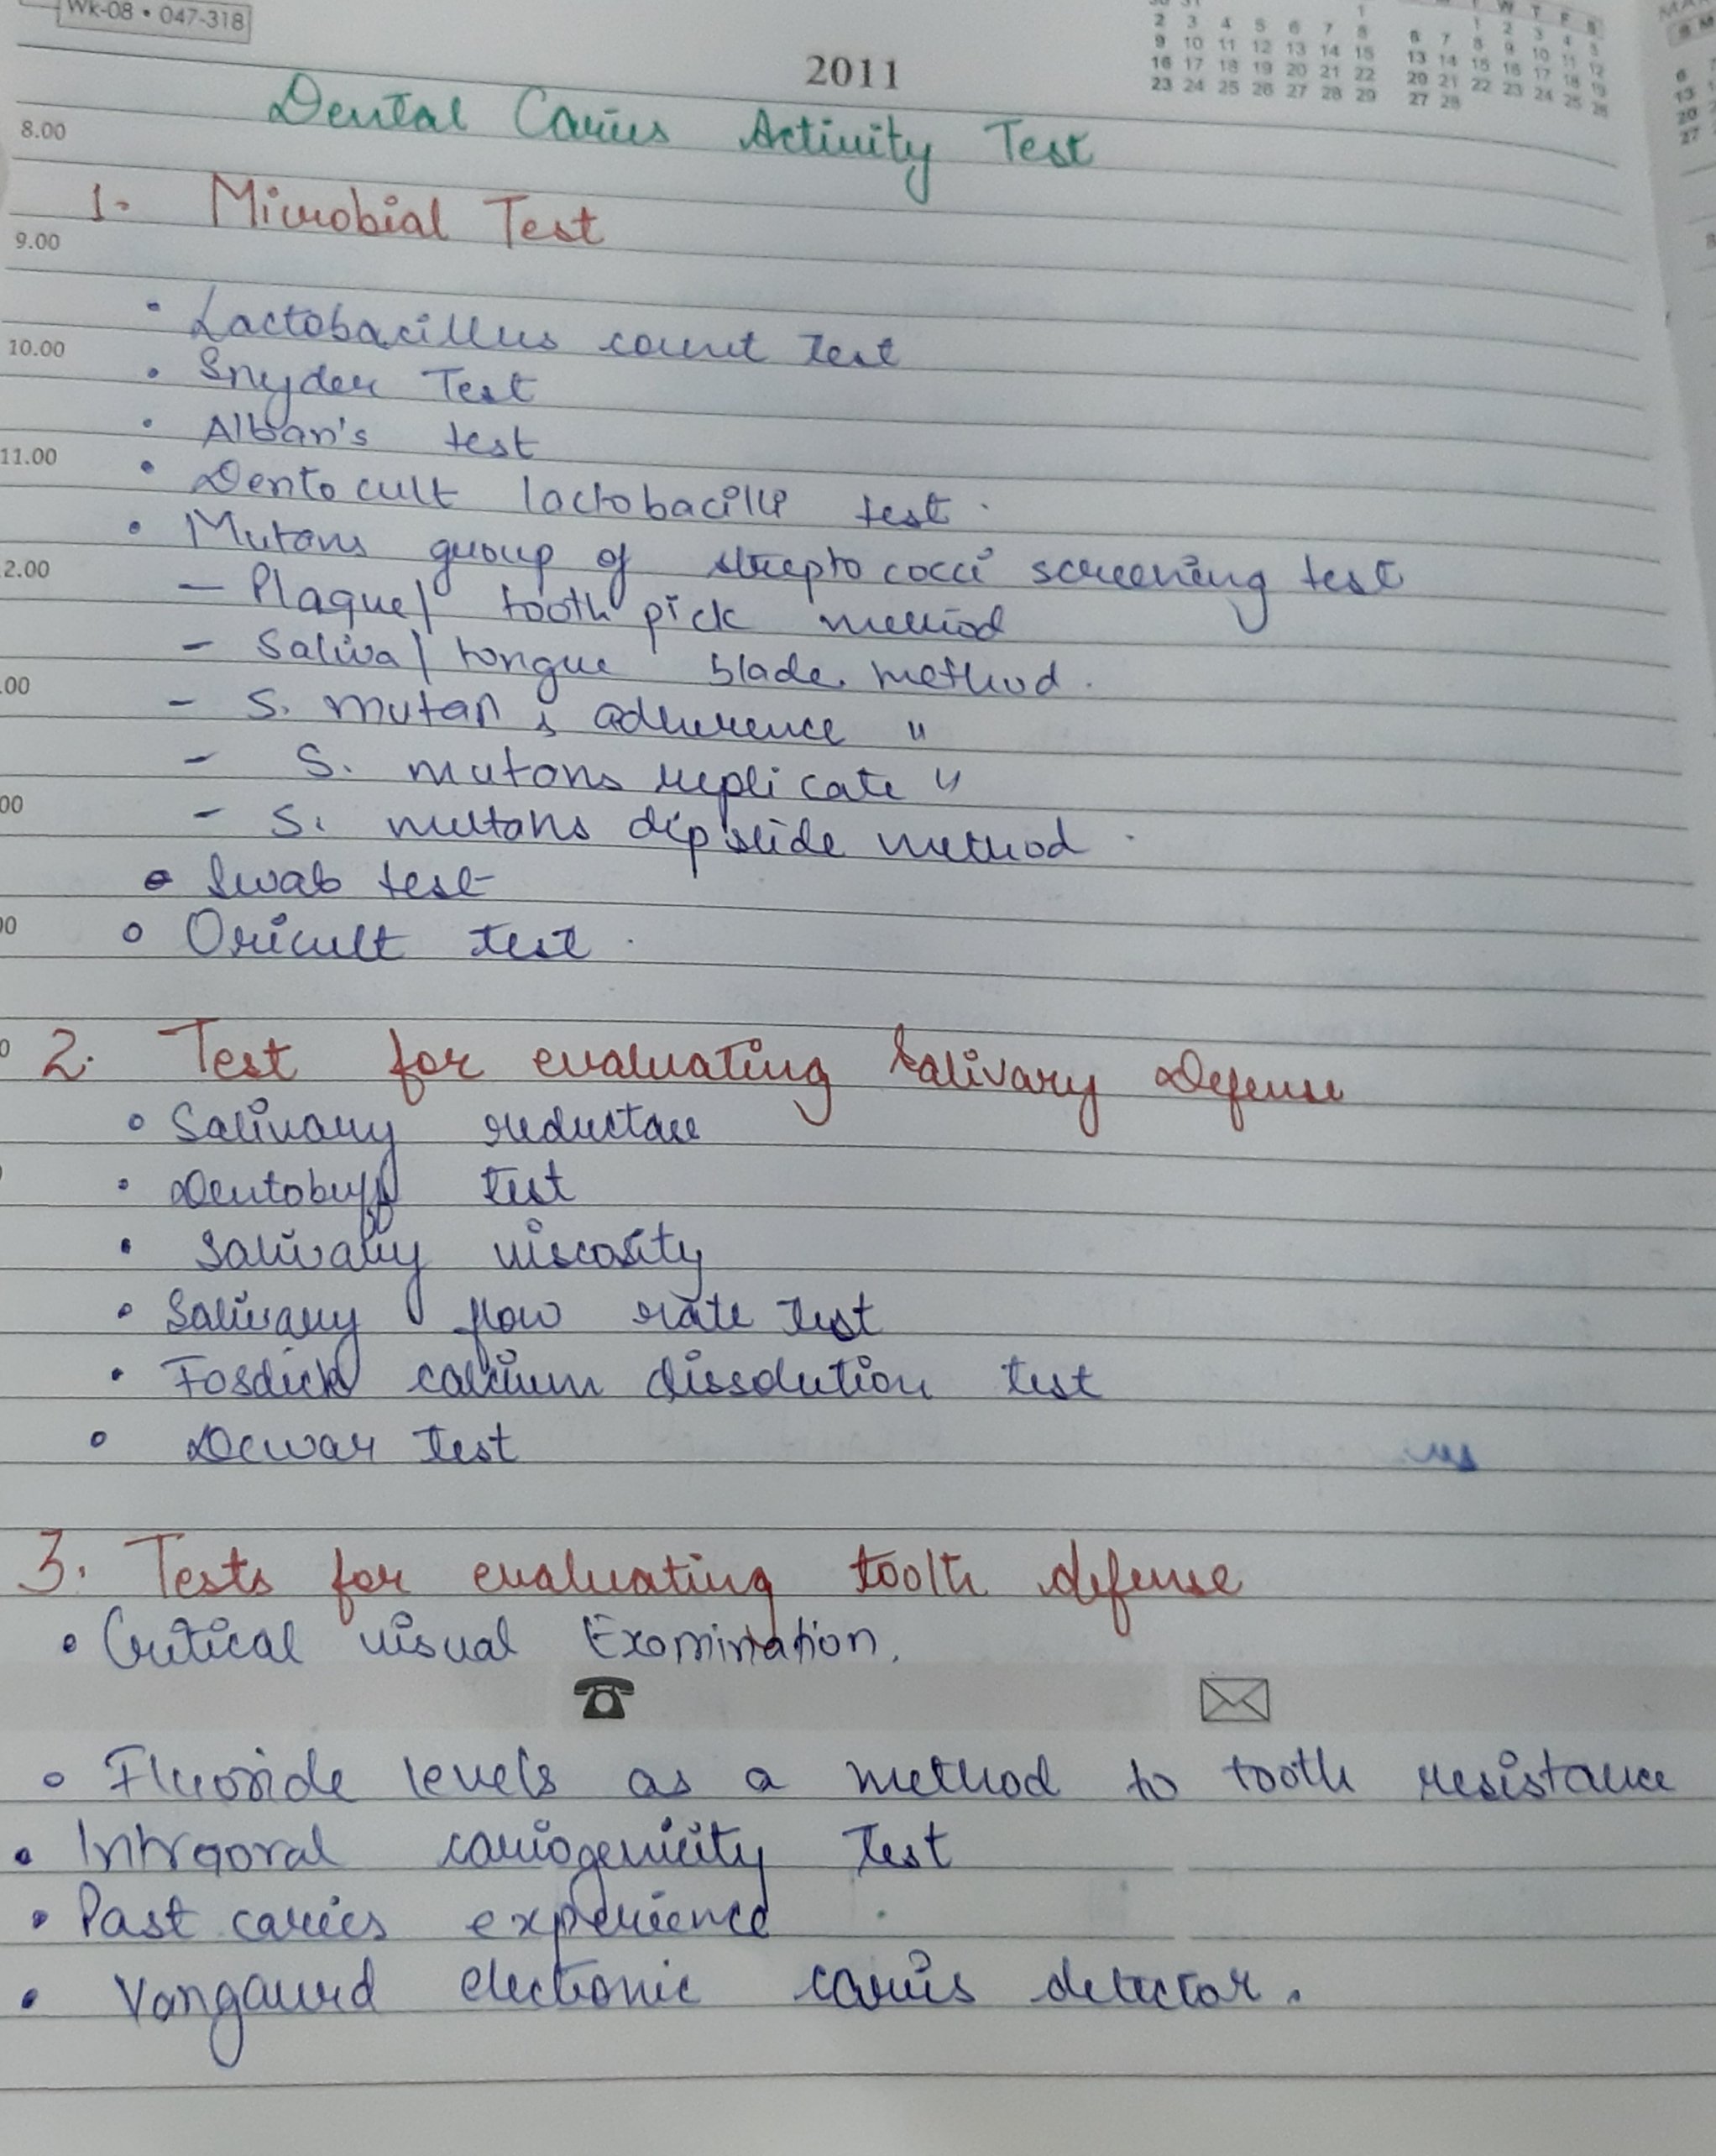 Wk-08 • 047-318
2011
1
2 3 4 5 6 7 8
9 10 11 12 13 14 15
16 17 18 19 20 21 22
23 24 25 26 27 28 29
W T F S
1 2 3 4 5
6 7 8 9 10 11 12
13 14 15 16 17 18 19
20 21 22 23 24 25 26
27 28
Dental Caries Activity Test
8.00
1. Microbial Test
9.00
• Lactobacillus count test
10.00
• Snyder Test
• Alban's test
11.00
• Dentocult lactobacilli test.
• Mutans group of streptococci screening test
2.00
- Plaque/ tooth pick method
- Saliva/ tongue blade method.
.00
- S. mutans adherence "
- S. mutans replicate "
00
- S. mutans dip slide method.
• Swab test
00
• Oricult test.
0
2. Test for evaluating Salivary Defense
• Salivary reductase
• Dentobuff test
• Salivary viscosity
• Salivary flow rate test
• Fosdick calcium dissolution test
• Dewar test
3. Tests for evaluating tooth defense
• Critical visual Examination.
• Fluoride levels as a method to tooth resistance
• Intraoral cariogenicity Test
• Past caries experience
• Vangaurd electronic caries detector.